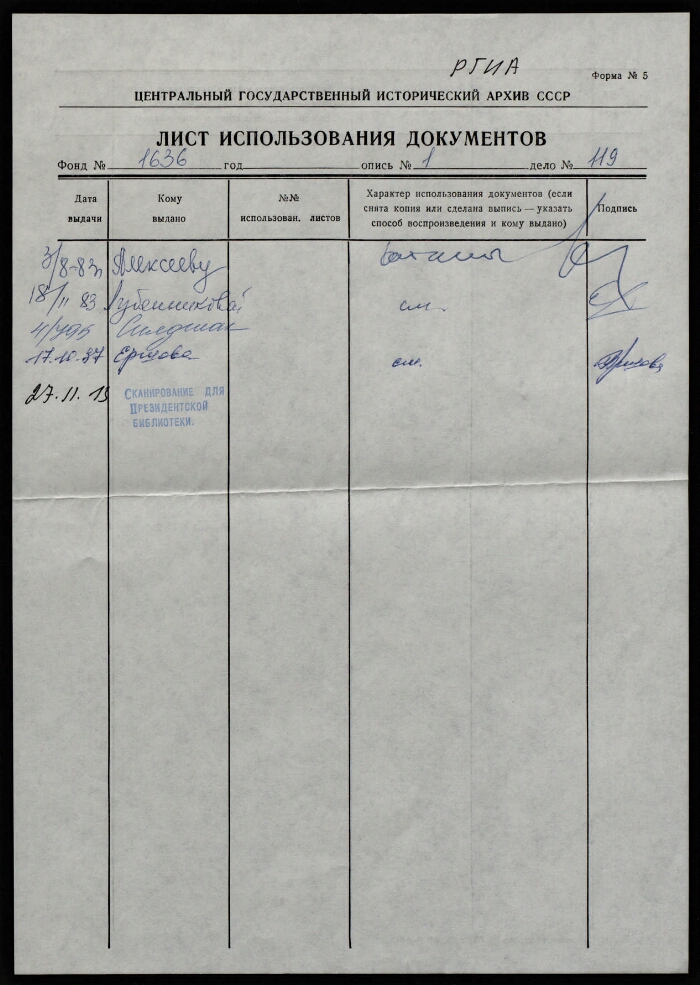 РГИА
Форма № 5
ЦЕНТРАЛЬНЫЙ ГОСУДАРСТВЕННЫЙ ИСТОРИЧЕСКИЙ АРХИВ СССР
ЛИСТ ИСПОЛЬЗОВАНИЯ ДОКУМЕНТОВ
Фонд № 1636 год опись № 1 дело № 119
Дата выдачи
Кому выдано
№№ использован. листов
Характер использования документов (если снята копия или сделана выпись — указать способ воспроизведения и кому выдано)
Подпись
Алексееву
18/II 83 см.
17.10.97 Ершова см.
27.11.19 Сканирование для
Президентской
библиотеки.